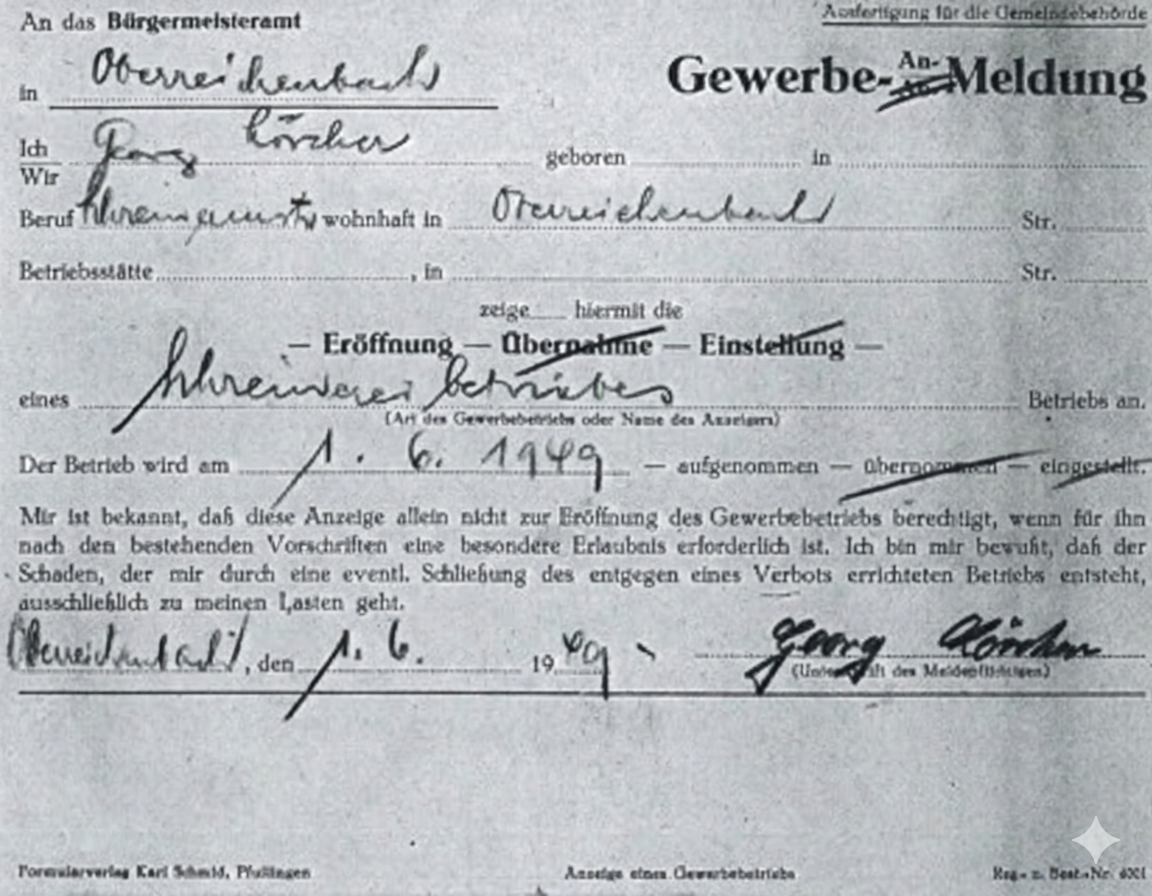 An das Bürgermeisteramt
Ausfertigung für die Gemeindebehörde
in Oberreichenbach
Gewerbe- An- Meldung
Ich Georg Lörcher geboren in
Wir
Beruf Schreinermstr wohnhaft in Oberreichenbach Str.
Betriebsstätte , in Str.
zeige hiermit die
— Eröffnung — Übernahme — Einstellung —
eines Schreinereibetriebes Betriebs an.
(Art des Gewerbebetriebs oder Name des Anzeigers)
Der Betrieb wird am 1. 6. 1949 — aufgenommen — übernommen — eingestellt.
Mir ist bekannt, daß diese Anzeige allein nicht zur Eröffnung des Gewerbebetriebs berechtigt, wenn für ihn
nach den bestehenden Vorschriften eine besondere Erlaubnis erforderlich ist. Ich bin mir bewußt, daß der
Schaden, der mir durch eine eventl. Schließung des entgegen eines Verbots errichteten Betriebs entsteht,
ausschließlich zu meinen Lasten geht.
Oberreichenbach, den 1. 6. 1949 Georg Lörcher
(Unterschrift des Meldepflichtigen)
Formularverlag Karl Schmid, Pfullingen Anzeige eines Gewerbebetriebs Reg.- u. Best.-Nr.